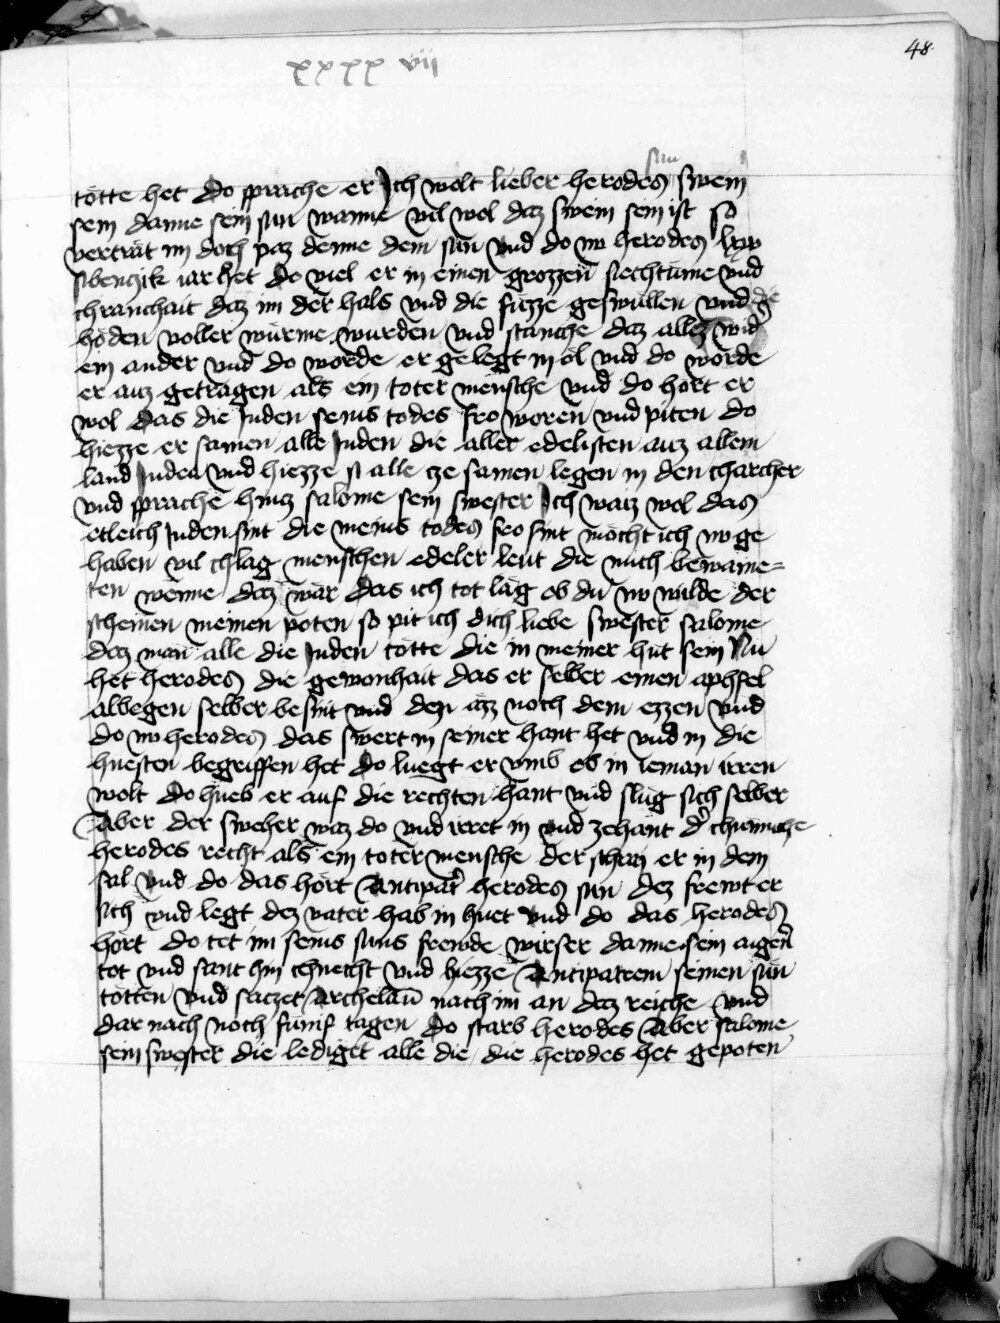 48.
xxxx vii
sun
tötte het do sprache er Ich wolt lieber herodes swein
sein danne sein sun wanne vil wol daz swein sein ist so
verträt im doch paz denne dem sun vnd do nv herodes lxx
sibenczik iar het do viel er in einen grozzen siechtume vnd
chranchait daz im der hals vnd die füzze geswullen vnd die
hoden voller würme wurden vnd stanche daz allez wider
ein ander vnd do worde er gelegt in öl vnd do worde
er auz getragen als ein toter mensche vnd do hort er
wol das die Juden seins todes fro woren vnd piten do
hiezze er samen alle Juden die aller edelisten auz allem
land Judea vnd hiezze si alle cze samen legen in den charcher
vnd sprache hincz salome sein swester Ich waiz wol das
etleich Juden sint die meins todes fro sint möcht ich nv ge
haben vil chlag menschen edeler leut die mich bewaine=
ten wenne daz wär das ich tot läg ob du nv wilde der
scheinen meinen poten so pit ich dich liebe swester salome
daz man alle die Juden tötte die in meiner hut sein Nu
het herodes die gewonhait das er selber einen aphfel
albegen selber besnit vnd den azz noch dem ezzen vnd
do nv herodes das swert in seiner hant het vnd in die
huesten begriffen het do luegt er vmb ob in ieman irren
wolt do hueb er auf die rechten hant vnd slug sich selber
Aber der sweher waz do vnd irret in vnd zehant d' chunichge
herodes recht als ein toter mensche der schrai er in dem
sal vnd do das hört Antipat' herodes sun dez frewt er
sich vnd legt dez vater hab in huet vnd do das herodes
hört do tet im seins suns frewde wirser danne sein aigen
tot vnd sant hin chnecht vnd hiezze Antipatrem seinen sun
tötten vnd saczet Archelau nach im an daz reiche vnd
dar nach noch fumf tagen do starb herodes Aber salome
sein swester die lediget alle die die herodes het gepoten